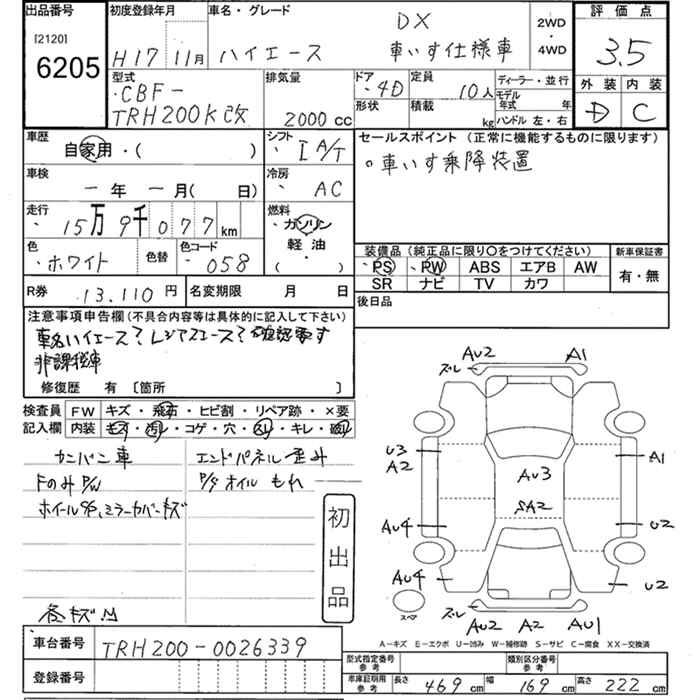 出品番号
[2120]
6205
初度登録年月
H17 11月
車名・グレード
ハイエース
DX
車いす仕様車
2WD
・
4WD
評価点
3.5
外装 内装
D C
型式
・CBF-
TRH200K改
排気量
2000cc
ドア
・4D
形状
定員
10人
積載
kg
ディーラー・並行
モデル
年式 年
ハンドル 左・右
車歴
自家用・( )
シフト
・ IA/T
車検
一年 一月( 日)
冷房
・ AC
走行
・15万9千077km
燃料
・ガソリン
軽油
・( )
色
・ホワイト
色替
色コード
・058
R券
13.110円
名変期限 月 日
セールスポイント (正常に機能するものに限ります)
○車いす乗降装置
装備品 (純正品に限り○をつけてください)
・PS ・PW ABS エアB AW
SR ナビ TV カワ
新車保証書
有・無
後日品
注意事項申告欄(不具合内容等は具体的に記入して下さい)
車名ハイエース?レジアスエース?確認要す
非課税車
修復歴 有 [箇所 ]
検査員
記入欄
FW キズ・飛石・ヒビ割・リペア跡・×要
内装 キズ・汚れ・コゲ・穴・スレ・キレ・破れ
カンバン車
FのみP/W
エンドパネル歪み
P/Sオイルもれ
初出品
各キズ凹
車台番号
TRH200-0026339
登録番号
AU2 A1
スレ
U3
A2
A1
AU3
SA2
AU4
U2
AU4
U2
スペア
スレ
AU2 A2 AU1
A-キズ E-エクボ U-凹み W-補修跡 S-サビ C-腐食 XX-交換済
型式指定番号
参考
類別区分番号
参考
車庫証明用
参考
長さ 469cm 幅 169cm 高さ 222cm